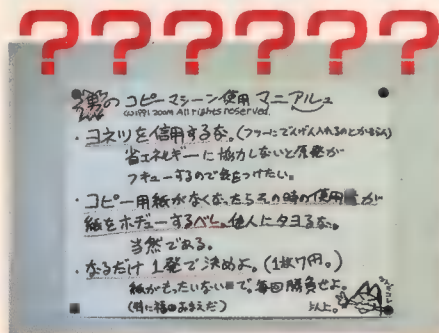 ??????
漢のコピーマシーン使用マニアル
All rights reserved.
・コネツを信用するな。
省エネルギーに協力しないと原発が
フキューするので気をつけたい。
・コピー用紙がなくなったらその時の使用者が
紙をホデューするべし。他人にタヨるな。
当然である。
・なるだけ1発で決めよ。(1枚7円。)
紙がもったいないので。毎回勝負せよ。
(特に福田おまえだ)